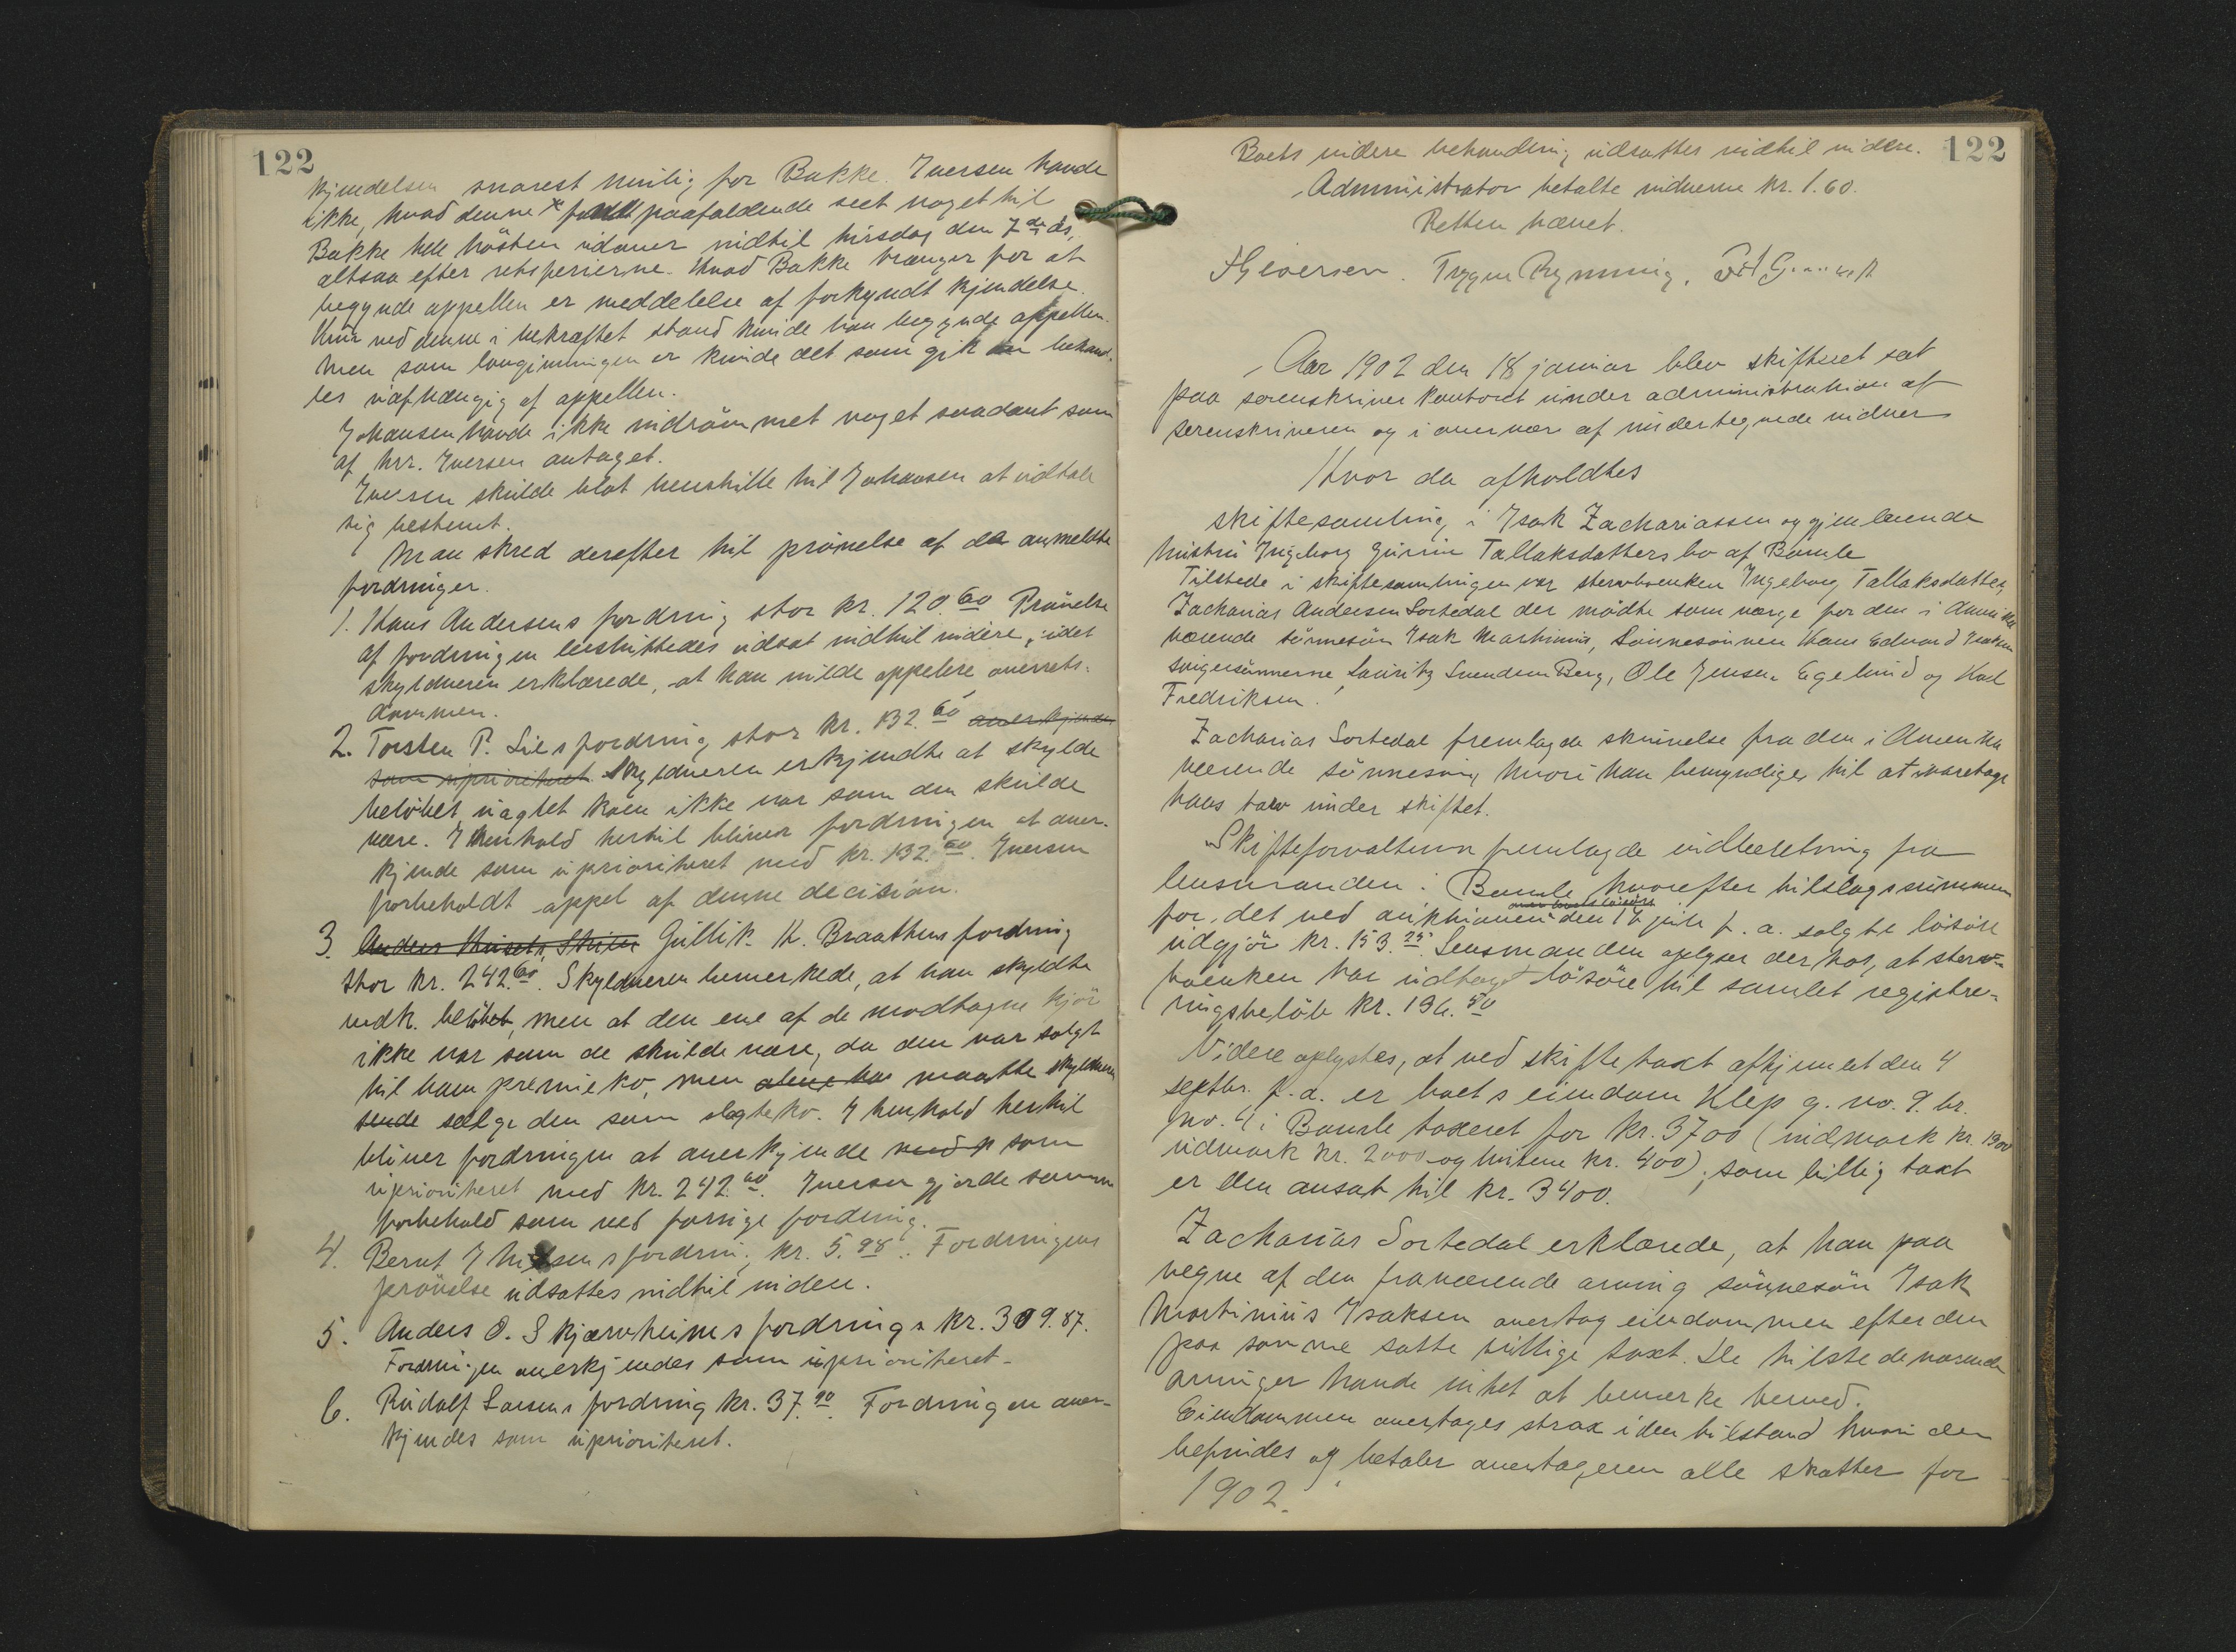 122
kjendelsen snarest mulig for Bakke. Iversen havde
ikke, hvad denne fandt paafaldende seet noget til
Bakke hele høsten udover indtil tirsdag den 7de ds,
altsaa efter retsferierne. Hvad Bakke trænger for at
begynde appellen er meddelelse af forkyndt kjendelse.
Kun ved denne i bekræftet stand kunde han begynde appellen.
Men som lovgivningen er kunde det som gik behand-
les uafhængig af appellen.
Johansen havde ikke indrømmet noget saadant som
af hrr. Iversen antaget.
Iversen skulde blot henstille til Johansen at udtale
sig bestemt.
Man skred derefter til prøvelse af de anmeldte
fordringer.
1. Hans Andersens fordring stor kr. 120.60 Prøvelse
af fordringen besluttedes udsat indtil videre, idet
skyldneren erklærede, at han vilde appelere overrets-
dommen.
2. Torsten P. Lies fordring stor kr. 132.60 anerkjendes
som uprioriteret Skyldneren erkjendte at skylde
beløbet uagtet koen ikke var som den skulde
være. I henhold hertil bliver fordringen at aner-
kjende som uprioriteret med kr. 132.60. Iversen
forbeholdt appel af denne decision.
3. Gullik K. Braathens fordring
stor kr. 242.60. Skyldneren bemerkede, at han skyldte
vedk. beløbet, men at den ene af de modtagne kjør
ikke var som de skulde være, da den var solgt
til ham premieko, men maatte skyldneren
sælge den som slagteko. I henhold hertil
bliver fordringen at anerkjende med p som
uprioriteret med kr. 242.60. Iversen gjorde samme
forbehold som ved forrige fordring.
4. Bernt fordring, kr. 5.98. Fordringens
prøvelse udsattes indtil videre.
5. Anders O. Skjærvheims fordring kr. 309.87.
Fordringen anerkjendes som uprioriteret.
6. Rudolf Larsens fordring kr. 37.90. Fordringen aner-
kjendes som uprioriteret.
122
Boets videre behandling udsattes indtil videre.
Administrator betalte vidnerne kr. 1.60.
Retten hævet.
Iversen. Trygve Rynning.
Aar 1902 den 18 januar blev skifteret sat
paa sorenskriverkontoret under administration af
sorenskriveren og i overvær af undertegnede vidner
Hvor da afholdtes
skiftesamling i Isak Zachariassen og gjenlevende
hustru Ingeborg Gurine Tallaksdatters bo af Bamle
Tilstede i skiftesamlingen var stervboenken Ingeborg Tallaksdatter,
Zacharias Andersen Sortedal der mødte som værge for den i Amerika
værende sønnesøn Isak Martinius, Sønnesønnen Hans Edvard Isaksen
svigersønnerne Lauritz Svendsen Berg, Ole Jensen Egelund og Karl
Fredriksen.
Zacharias Sortedal fremlagde skrivelse fra den i Amerika
værende sønnesøn, hvori han bemyndiges til at varetage
hans tarv under skiftet.
Skifteforvalteren fremlagde indberetning fra
lensmanden i Bamle hvorefter tilslagssummen
for det ved auktionen den 16 juli f. a. solgte løsøre
udgjør kr. 153.25. Lensmanden oplyser derhos, at sterv-
boenken har udtaget løsøre til samlet registre-
ringsbeløb kr. 196.50
Videre oplystes, at ved skiftetaxt afhjemlet den 4
septbr. f. a. er boets eiendom Klep g. no. 9. br.
no. 4 i Bamle taxeret for kr. 3700 (indmark kr. 1300
udmark kr. 2000 og husene kr. 400), som billig taxt
er den ansat til kr. 3400.
Zacharias Sortedal erklærede, at han paa
vegne af den fraværende arving sønnesøn Isak
Martinius Isaksen overtog eiendommen efter den
paa samme satte billige taxt. De tilstedeværende
arvinger havde intet at bemærke herved.
Eiendommen overtages strax i den tilstand hvori den
befindes og betaler overtageren alle skatter for
1902.